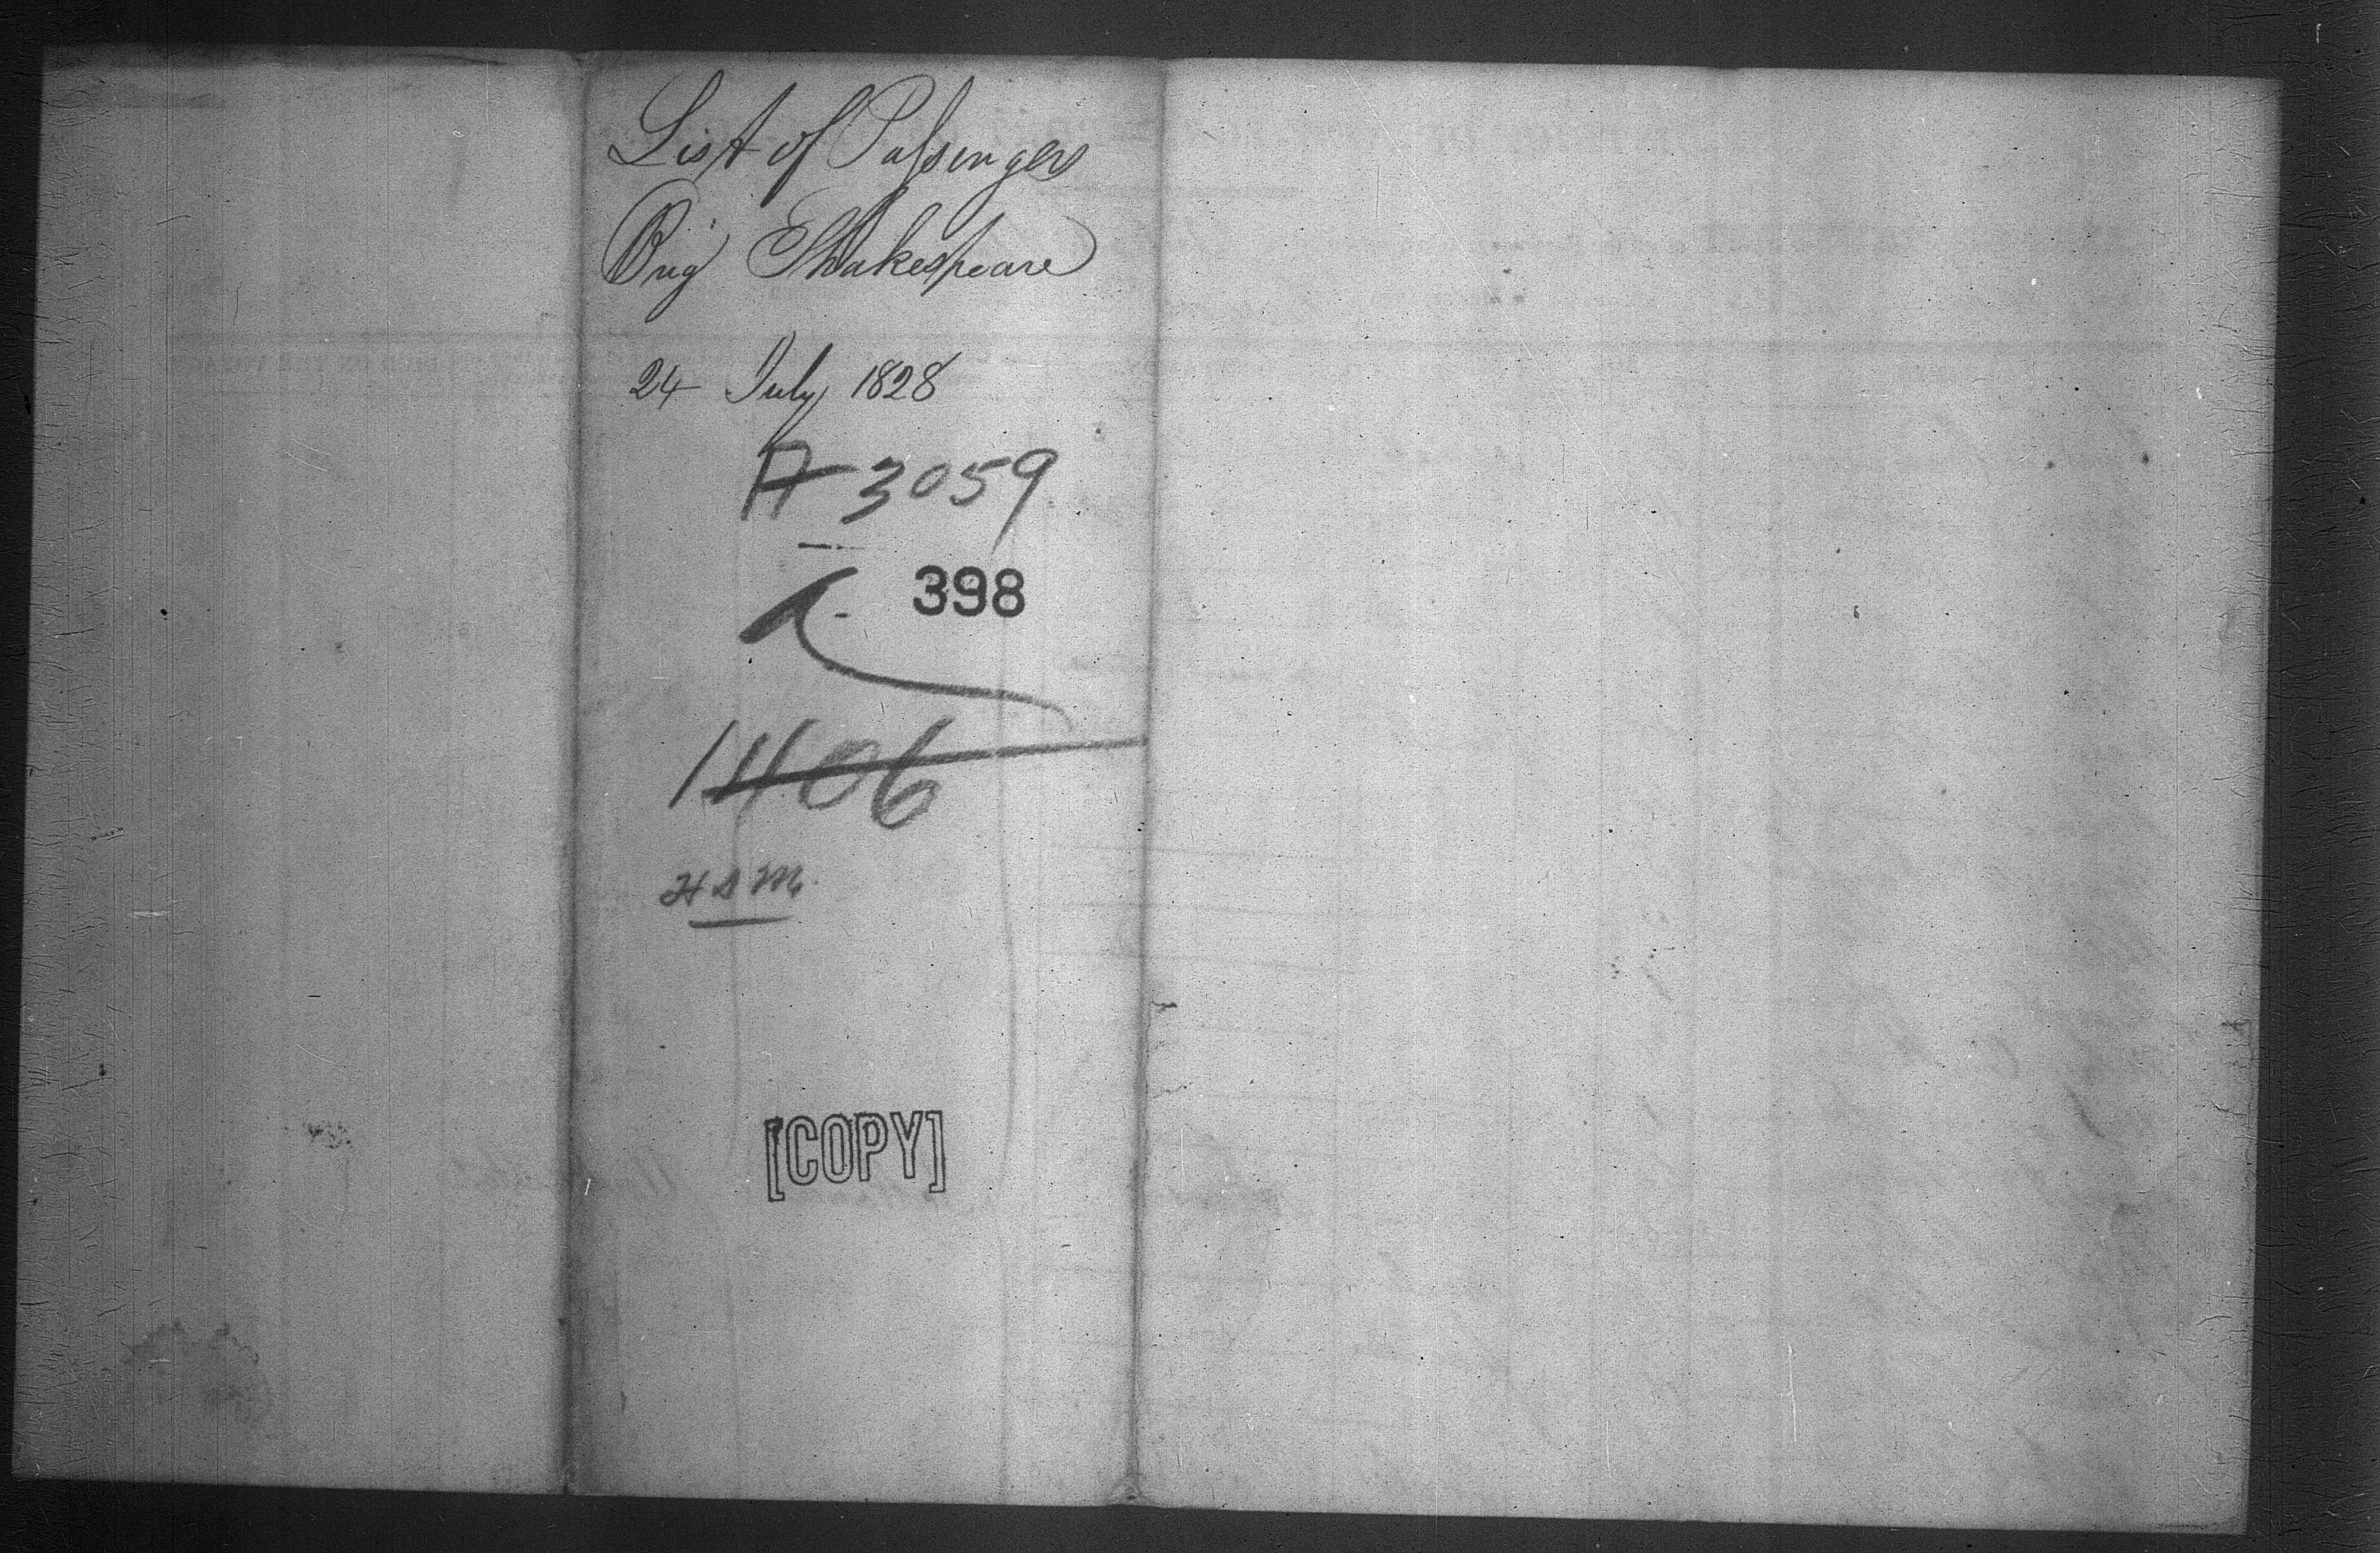 List of Passengers
Brig Shakespeare
24 July 1828
A 3059
398
1406
H S M.
[COPY]